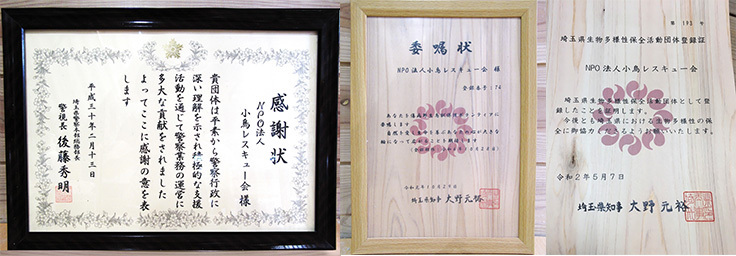 感謝状
NPO法人
小鳥レスキュー会様
貴団体は平素から警察行政に
深い理解を示され積極的な支援
活動を通じて警察業務の運営に
多大な貢献をされました
よってここに感謝の意を表
します
平成三十年二月十三日
埼玉県警察本部総務部長
警視長 後藤秀明
委嘱状
NPO法人小鳥レスキュー会 様
登録番号:74
委嘱します
埼玉県知事 大野元裕
第 193 号
埼玉県生物多様性保全活動団体登録証
NPO法人小鳥レスキュー会
埼玉県生物多様性保全活動団体として登
録したことを証明します。
今後とも埼玉県における生物多様性の保
全に御協力くださるようお願いいたします。
令和2年5月7日
埼玉県知事 大野元裕